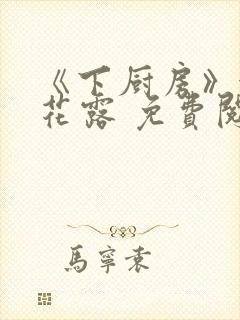 《下厨房》
花露 免費閱
馬寧袁